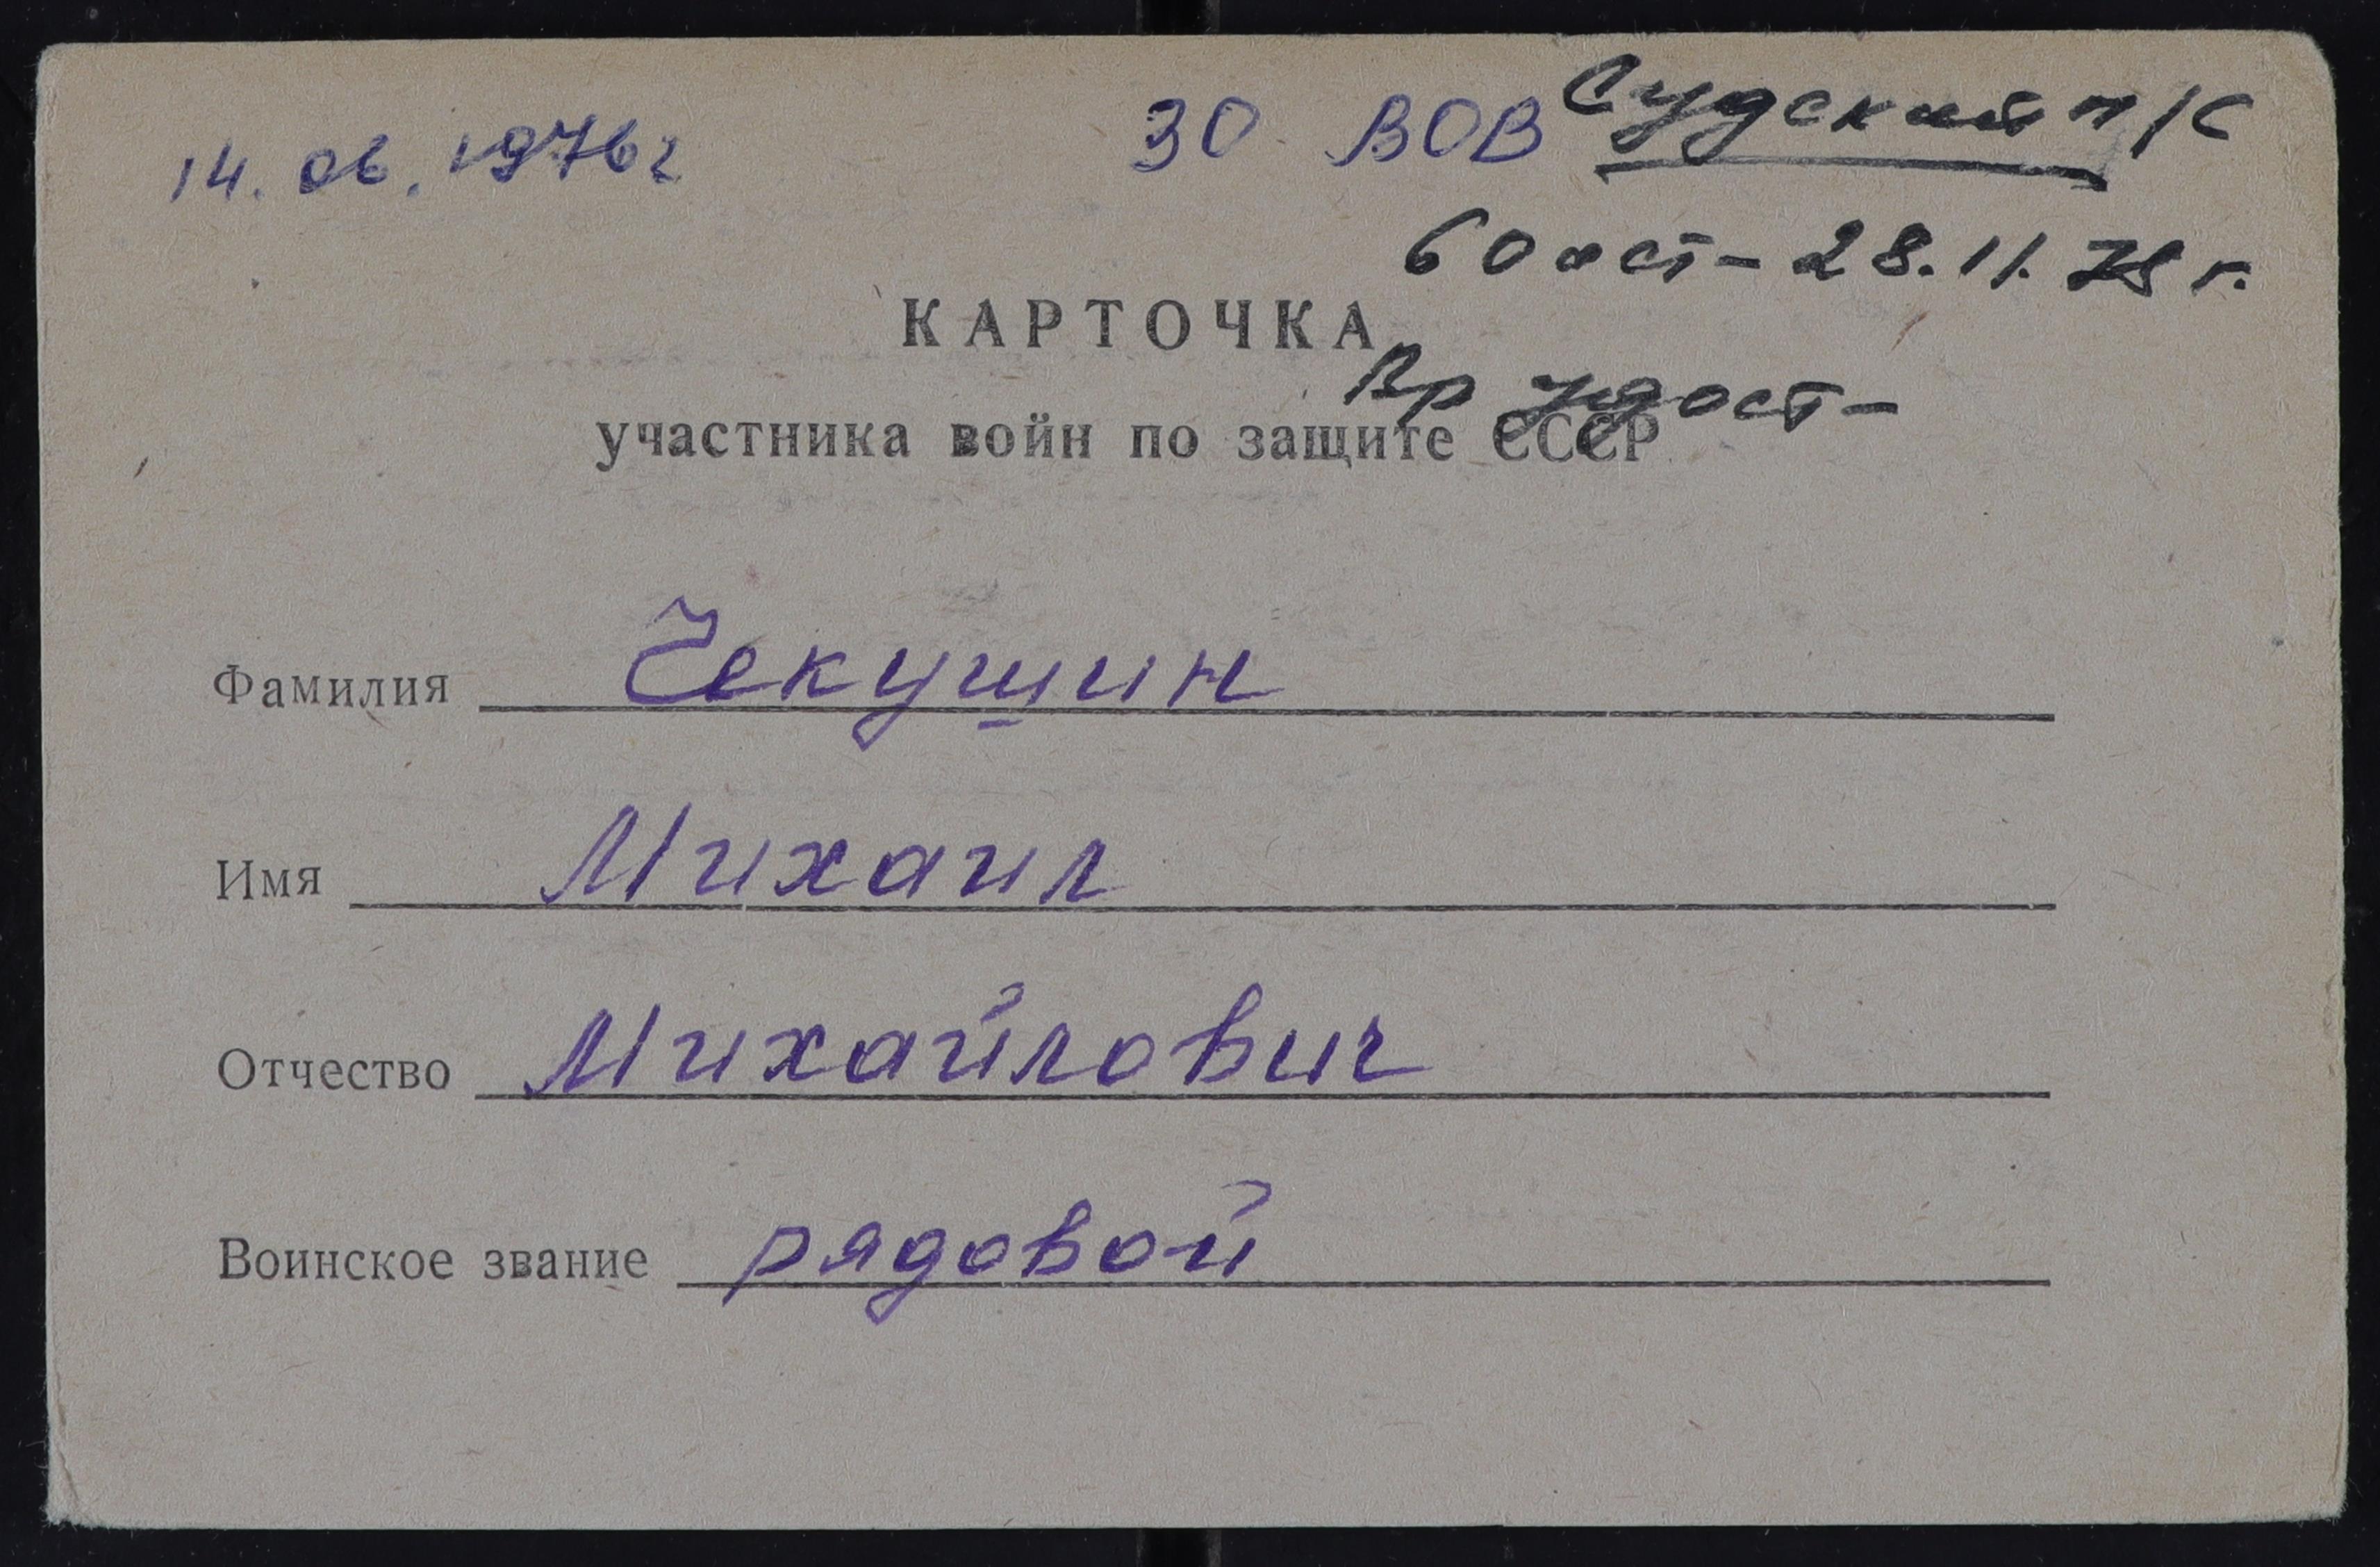 14.06.1976г 30 ВОВ Судский п/с
60 ает - 28.11.78 г.
КАРТОЧКА
Вр удост-
участника войн по защите СССР
Фамилия Чекушин
Имя Михаил
Отчество Михайлович
Воинское звание рядовой